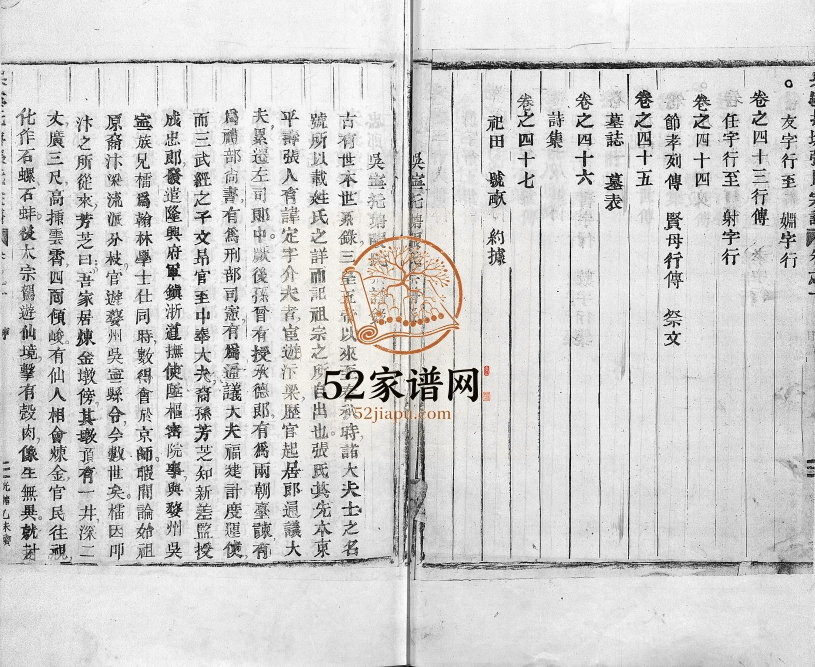 文字行至 婣字行
卷之四十三行傳
任字行至 射字行
卷之四十四
節孝列傳 賢母行傳 祭文
卷之四十五
墓誌 墓表
卷之四十六
詩集
卷之四十七
祀田 號畝 約據
吳寧托塘
古有世本世系錄三皇五帝以來 時諸大夫士之名
號所以載姓氏之詳而記祖宗之所自出也張氏其先本東
平壽張人有諱定字介夫者宦遊汴梁歷官起居郎通議大
夫累遷左司郎中厥後孫曾有授承德郎有為兩朝臺諫有
為禮部尚書有為刑部司憲有為通議大夫福建計度運使
而三武經之子文昂官至中奉大夫裔孫芳芝知新差監授
成忠郎發遣隆興府軍鎮浙道撫使歷樞密院事與婺州吳
寧族兄檽為翰林學士仕同時數得會於京師暇間論始祖
原裔汴梁流派分枝官遊婺州吳寧縣令今數世矣檽因叩
汴之所從來芳芝曰吾家居煉金墩傍其墩頂有一井深二
丈廣三尺高揷雲霄四面傾峻有仙人相會煉金官民往視
化作石螺石蚌後太宗駕遊仙境擊有殼肉像生無異就封
序
52家谱网
52jiapu.com